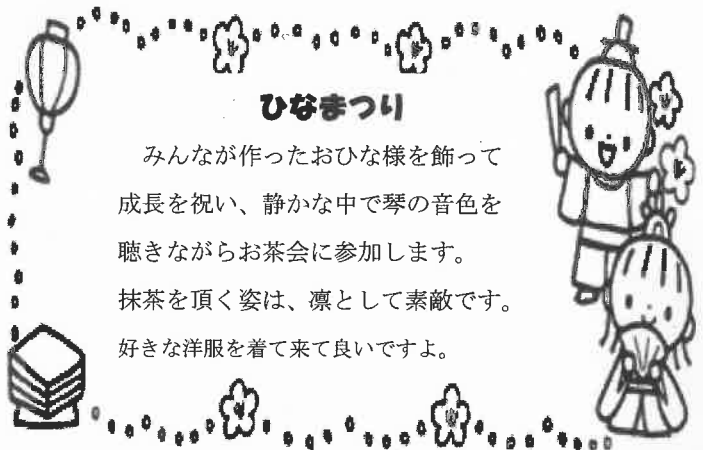 ひなまつり
みんなが作ったおひな様を飾って
成長を祝い、静かな中で琴の音色を
聴きながらお茶会に参加します。
抹茶を頂く姿は、凛として素敵です。
好きな洋服を着て来て良いですよ。